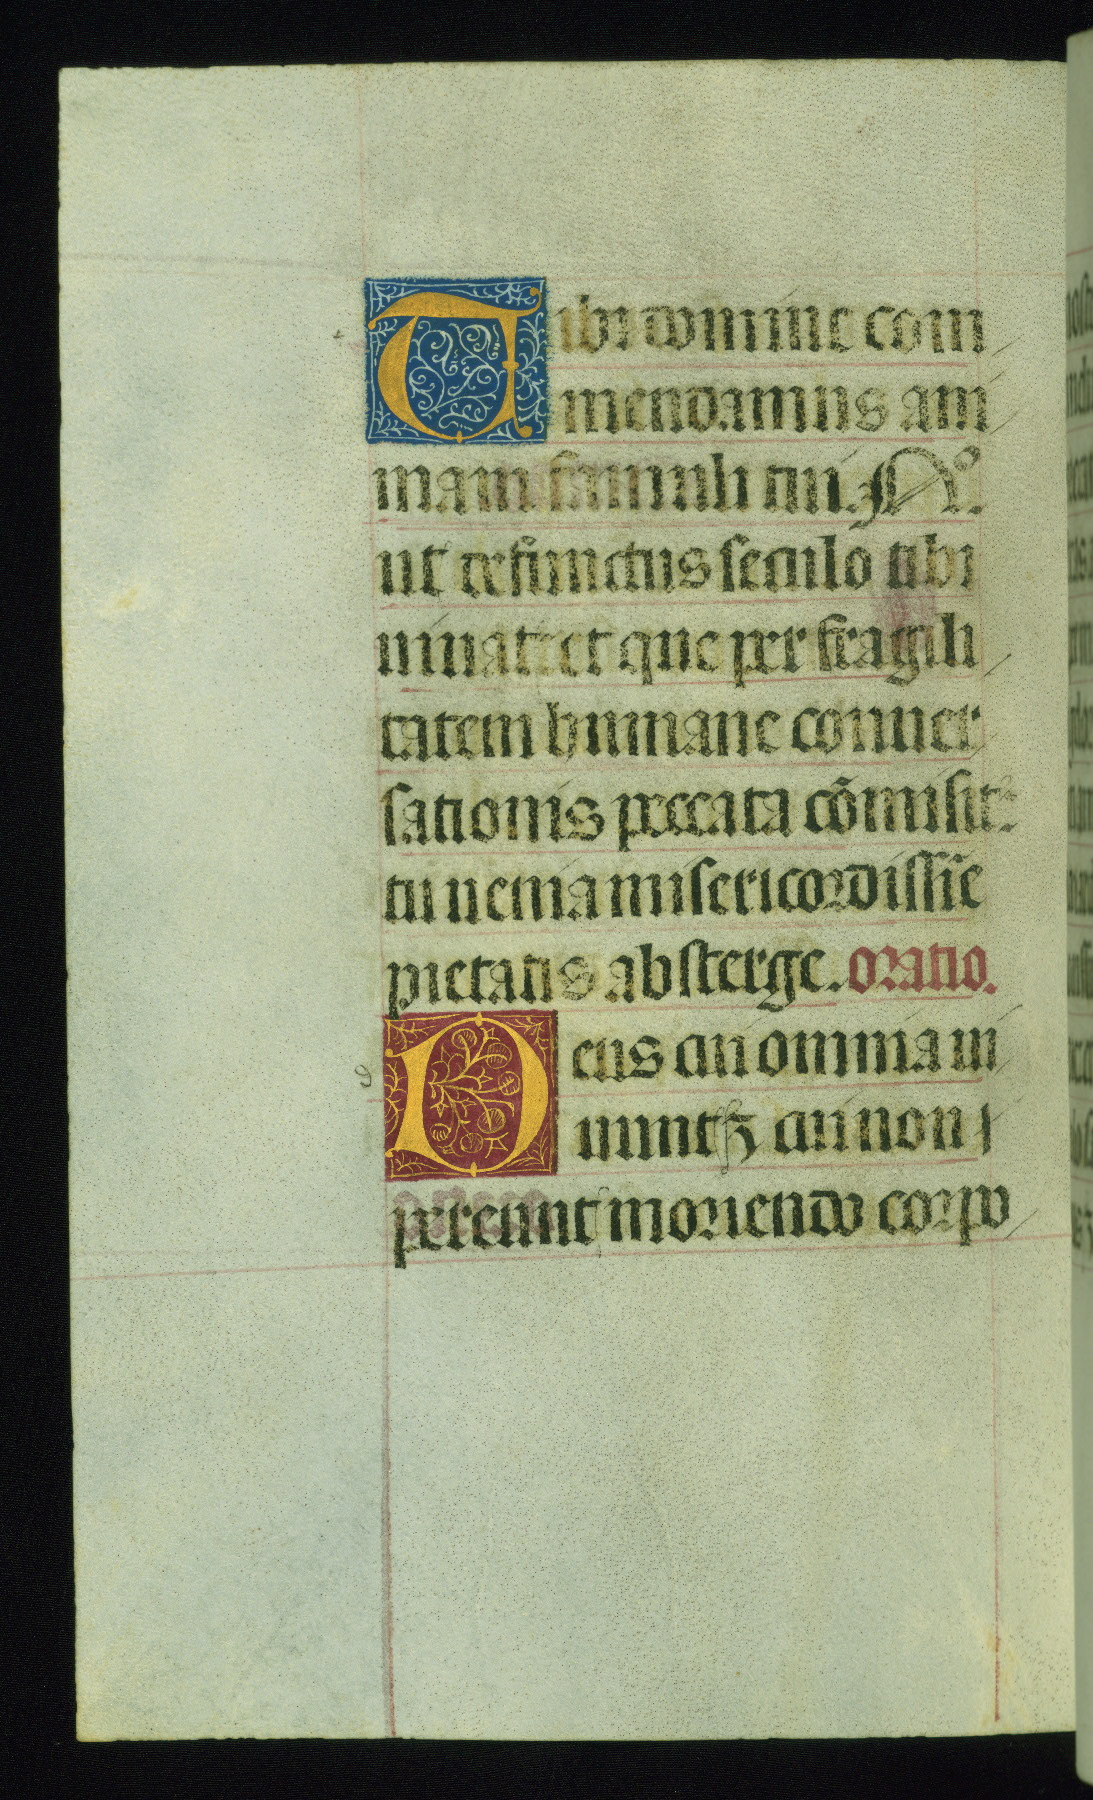 Tibi domine com
mendamus ani
mam famuli tui. N.
ut defunctus seculo tibi
uiuat: et que per fragili
tatem humane conuer
sationis peccata cōmisit:
tu uenia misericordissīe
pietatis absterge. oratio.
Deus cui omnia ui
uunt ꝫ cui non
pereunt moriendo corpo